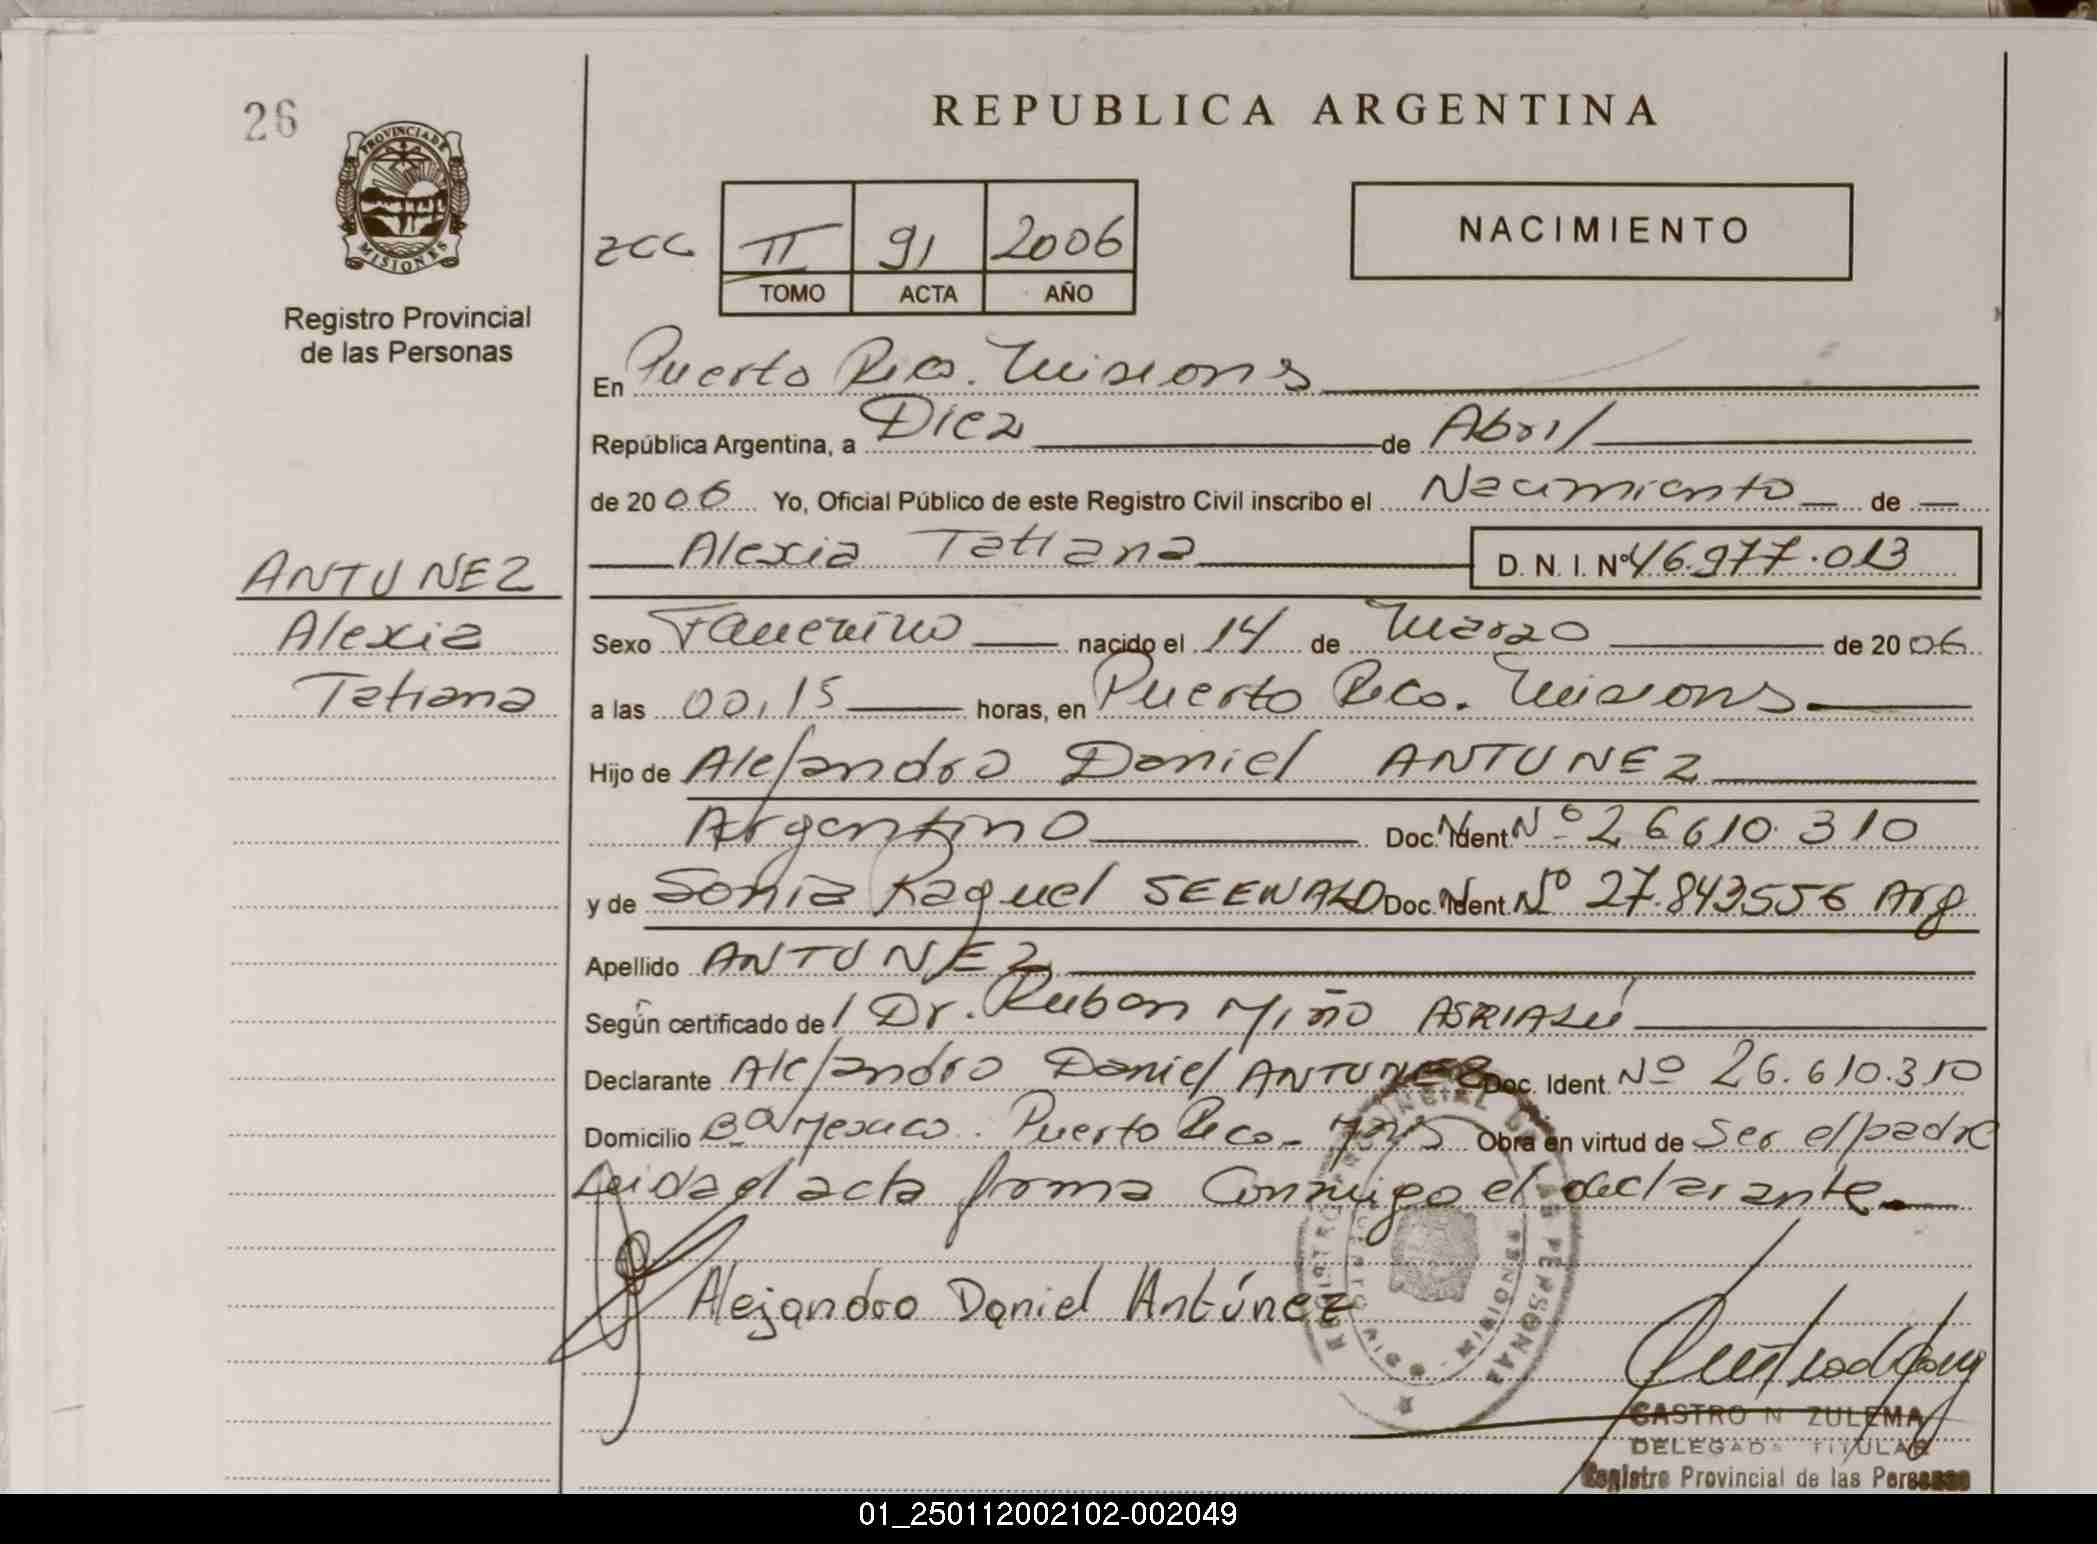 26
PROVINCIA DE
MISIONES
Registro Provincial
de las Personas
REPUBLICA ARGENTINA
NACIMIENTO
ZCC II 91 2006
TOMO ACTA AÑO
En Puerto Rico. Misiones
República Argentina, a Diez de Abril
de 2006 Yo, Oficial Público de este Registro Civil inscribo el Nacimiento de
Alexia Tatiana D. N. I. Nº 46.977.013
ANTUNEZ
Alexia
Tatiana
Sexo Femenino nacido el 14 de Marzo de 2006
a las 00,15 horas, en Puerto Rico. Misiones
Hijo de Alejandro Daniel ANTUNEZ
Argentino Doc. Ident. Nº 26610.310
y de Sonia Raquel SEEWALD Doc. Ident. Nº 27.843556 Arg
Apellido ANTUNEZ
Según certificado de Dr. Ruben Miño
Declarante Alejandro Daniel ANTUNEZ Doc. Ident. Nº 26.610.310
Domicilio Bº Mexico. Puerto Rico - Mnes Obra en virtud de Ser el padre
Leida el acta firma Conmigo el declarante
Alejandro Daniel Antúnez
REGISTRO PROVINCIAL DE LAS PERSONAS
CASTRO N ZULEMA
DELEGADA TITULAR
Registro Provincial de las Personas
01_250112002102-002049